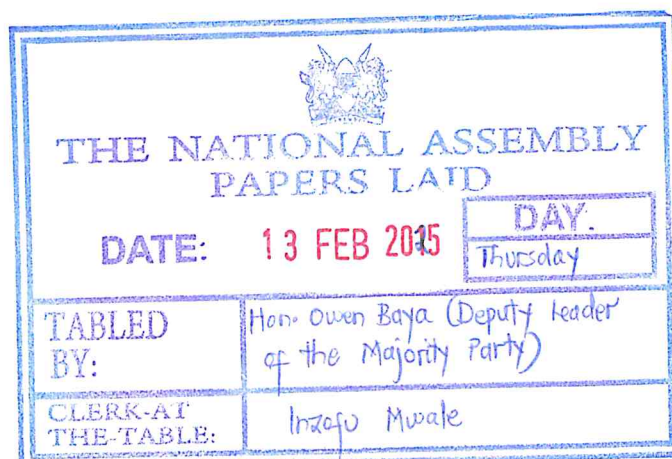 THE NATIONAL ASSEMBLY
PAPERS LAID
DATE: 13 FEB 2025
DAY.
Thursday
TABLED BY:
Hon. Owen Baya (Deputy Leader
of the Majority Party)
CLERK-AT THE-TABLE:
Inzofu Mwale